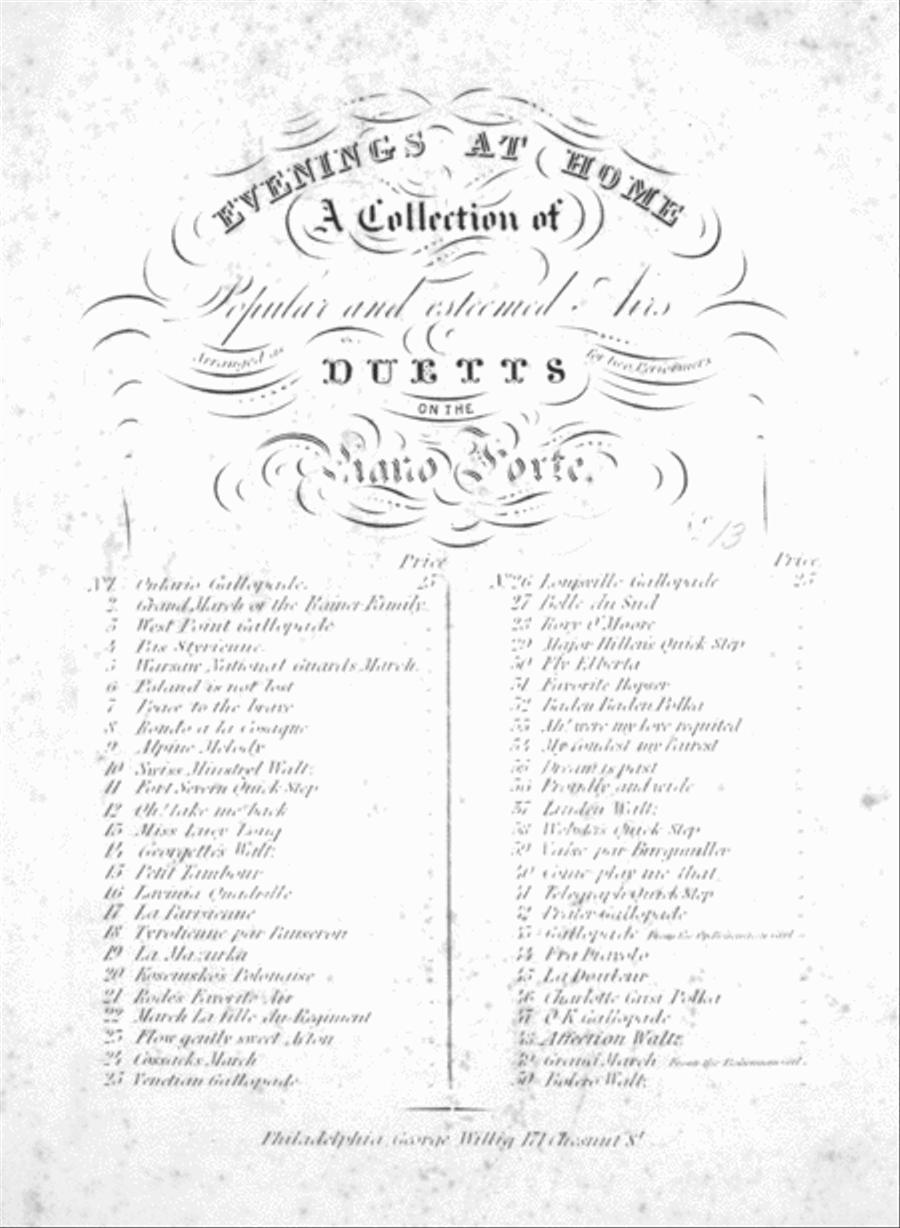 EVENINGS AT HOME
A Collection of
Popular and esteemed Airs
Arranged as DUETTS for two Performers
ON THE
Piano Forte.
No. 13
Price
No. 1. Ontario Gallopade. 25
2 Grand March of the Rainer Family.
3 West Point Gallopade
4 Pas Styrienne.
5 Warsaw National Guards March.
6 Poland is not lost
7 Peace to the brave
8 Rondo a la Cosaque
9 Alpine Melody
10 Swiss Minstrel Waltz
11 Fort Severn Quick Step
12 Oh! take me back
13 Miss Lucy Long
14 Georgette's Waltz
15 Petit Tambour
16 Lavinia Quadrille
17 La Parisienne
18 Tyrolienne par Panseron
19 La Mazurka
20 Kosciusko's Polonaise
21 Rode's Favorite Air
22 March La fille du Regiment
23 Flow gently sweet Afton
24 Cossacks March
25 Venetian Gallopade
Price
No. 26 Louisville Gallopade 25
27 Belle du Sud
28 Rory O'Moore
29 Major Hillen's Quick Step
30 Fly Elberta
31 Favorite Hopser
32 Baden Baden Polka
33 Ah! were my love requited
34 My fondest my fairest
35 Dream is past
36 Proudly and wide
37 Linden Waltz
38 Webster's Quick Step
39 Valse par Burgmuller
40 Come play me that
41 Telegraph Quick Step
42 Prater Gallopade
43 Gallopade From the Bohemian Girl
44 Fra Diavolo
45 La Douleur
46 Charlotte Cust Polka
47 O K Gallopade
48 Affection Waltz
49 Grand March From the Bohemian Girl
50 Bolero Waltz
Philadelphia, George Willig 171 Chesnut St.